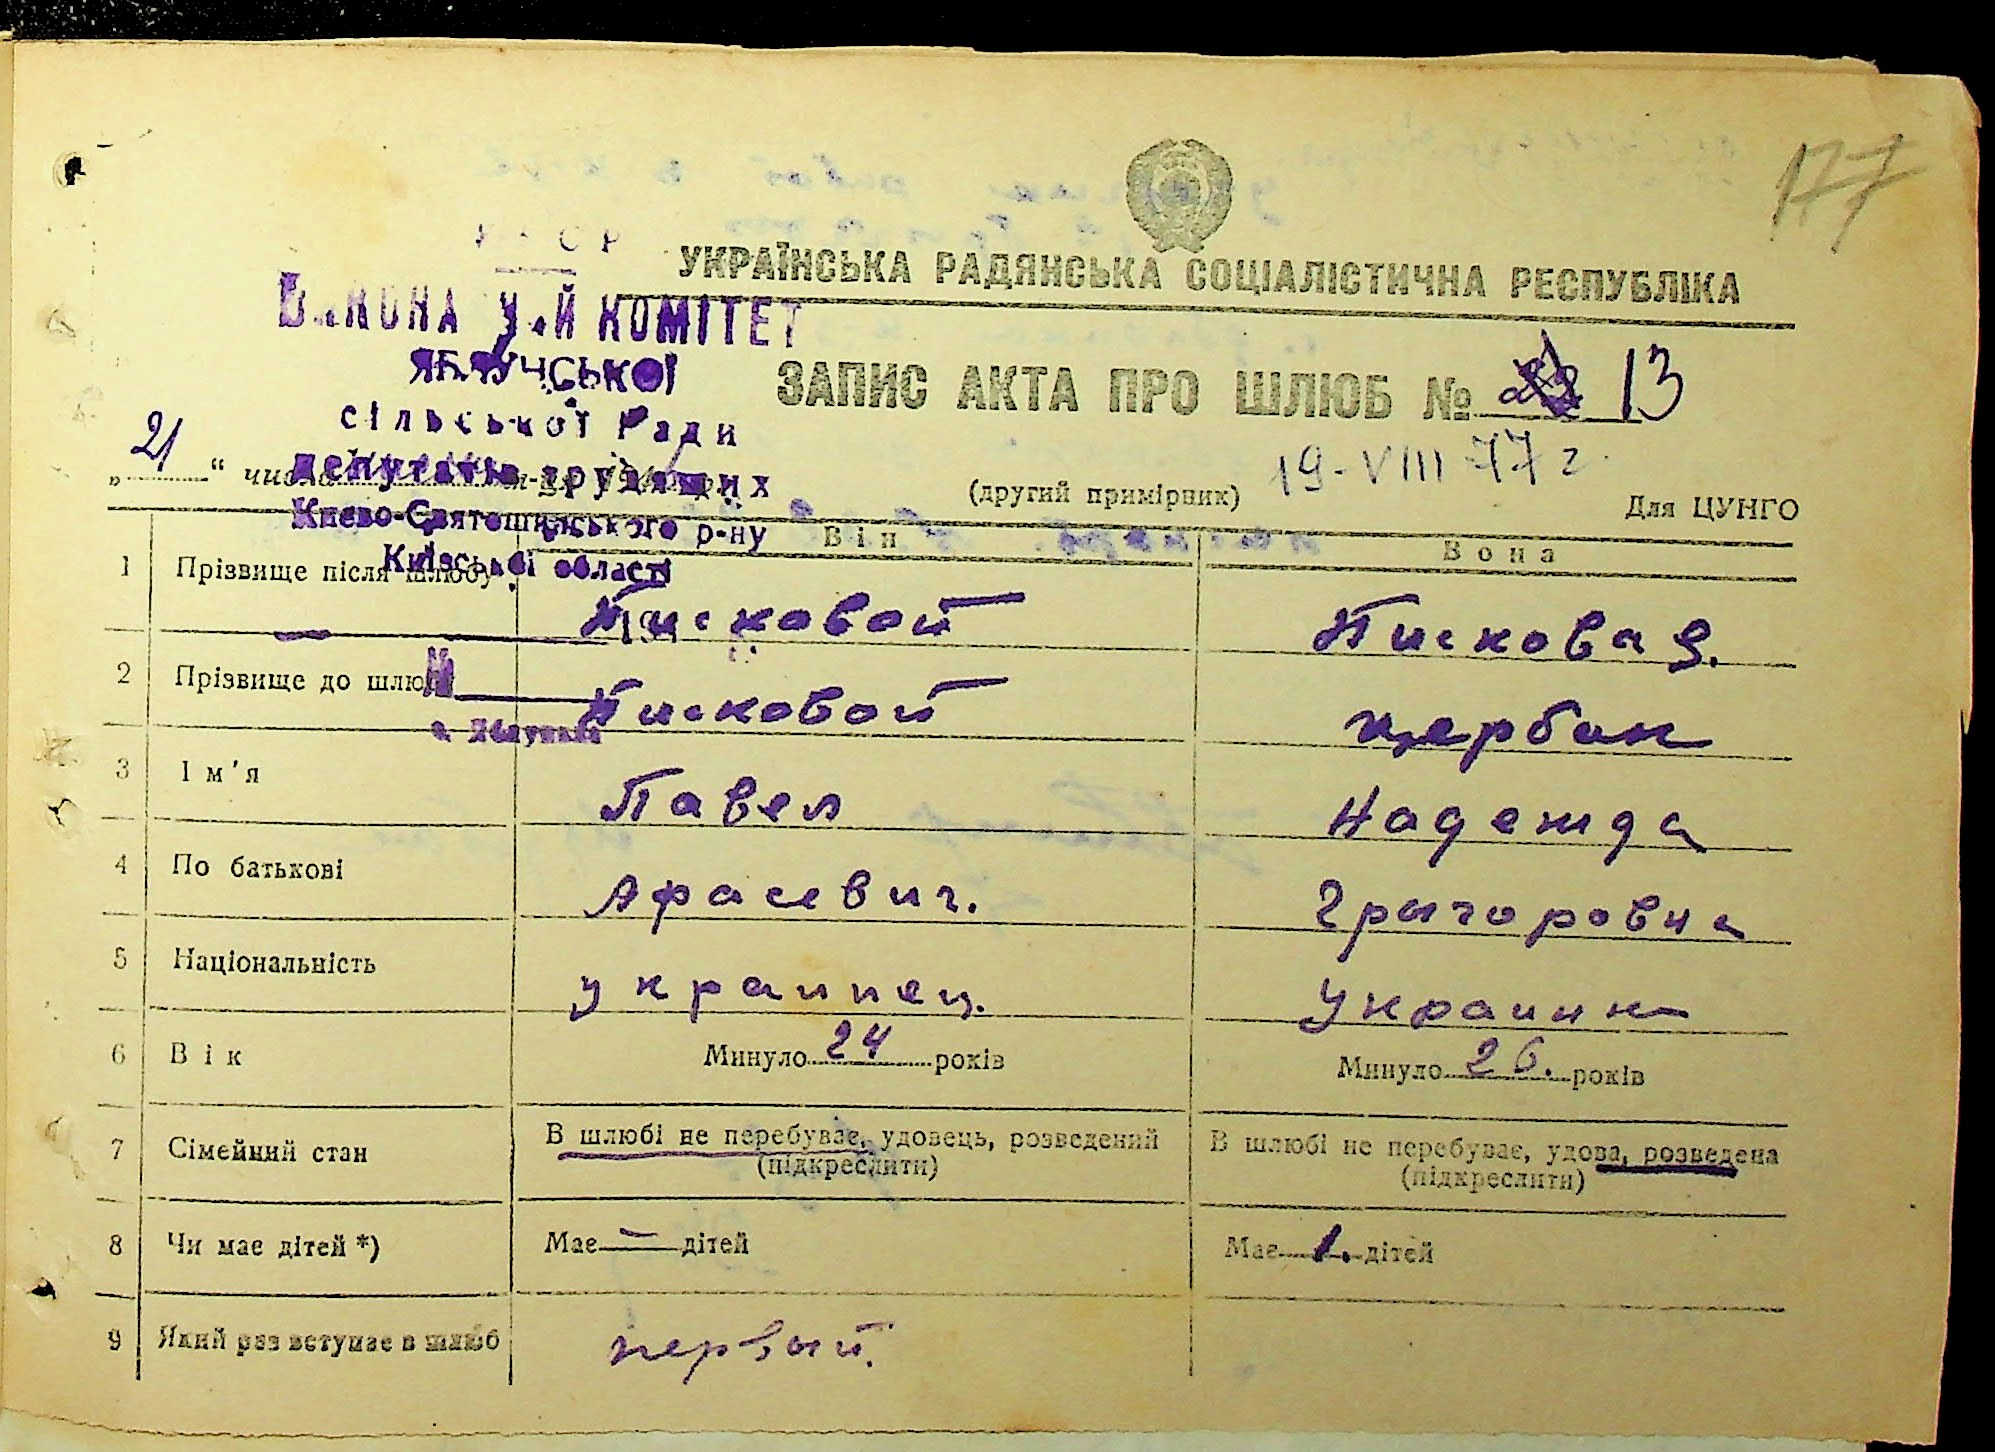 177
УКРАЇНСЬКА РАДЯНСЬКА СОЦІАЛІСТИЧНА РЕСПУБЛІКА
КОМІТЕТ
ЗАПИС АКТА ПРО ШЛЮБ № 13
сільської Ради
„21“ числа
депутатів трудящих
(другий примірник) 19-VIII 77 г.
Для ЦУНГО
Києво-Святошинського р-ну
Київської області
Він Вона
1 Прізвище після шлюбу Писковой Писковая.
2 Прізвище до шлюбу Писковой Щербак
3 Ім'я Павел Надежда
4 По батькові Афасевич. Грыгоровна
5 Національність украинец. Украинк
6 Вік Минуло 24 років Минуло 26. років
7 Сімейний стан В шлюбі не перебуває, удовець, розведений (підкреслити) В шлюбі не перебуває, удова, розведена (підкреслити)
8 Чи має дітей *) Має — дітей Має 1. дітей
9 Який раз вступає в шлюб первый.